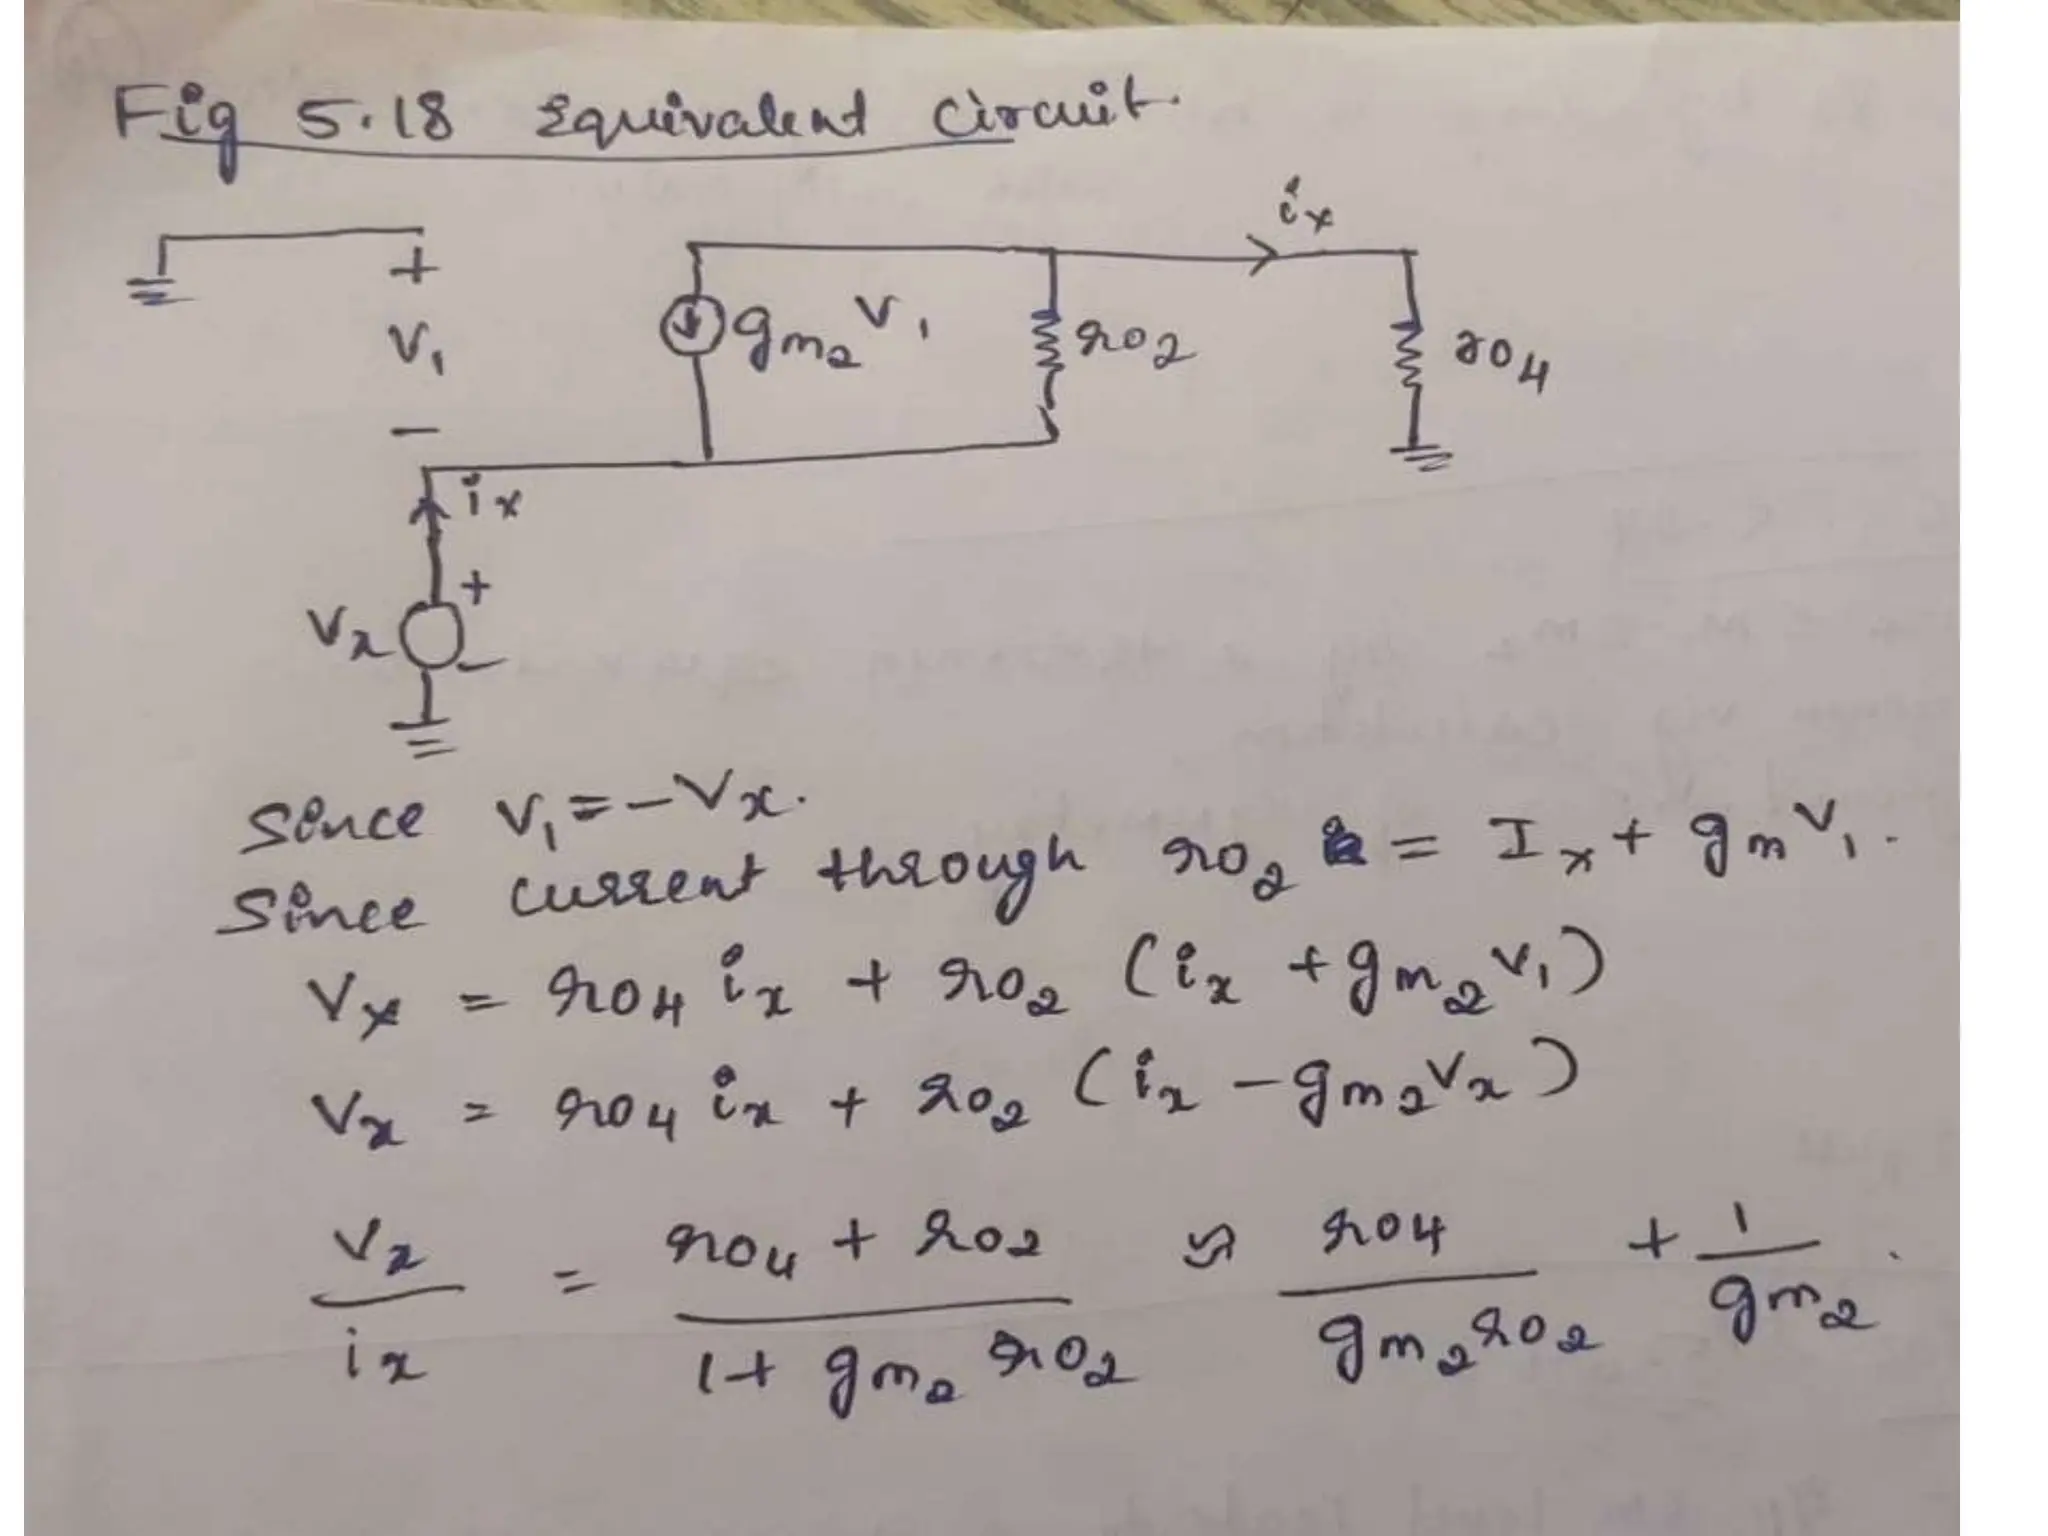 Fig 5.18 Equivalent circuit.
ix
+
V1
-
gm2 V1
ro2
ro4
ix
+
Vx
-
Since V1 = -Vx.
Since current through ro2 = Ix + gm V1.
Vx = ro4 ix + ro2 (ix + gm2 V1)
Vx = ro4 ix + ro2 (ix - gm2 Vx)
Vx / ix = ro4 + ro2 / 1 + gm2 ro2 ≈ ro4 / gm2 ro2 + 1 / gm2.